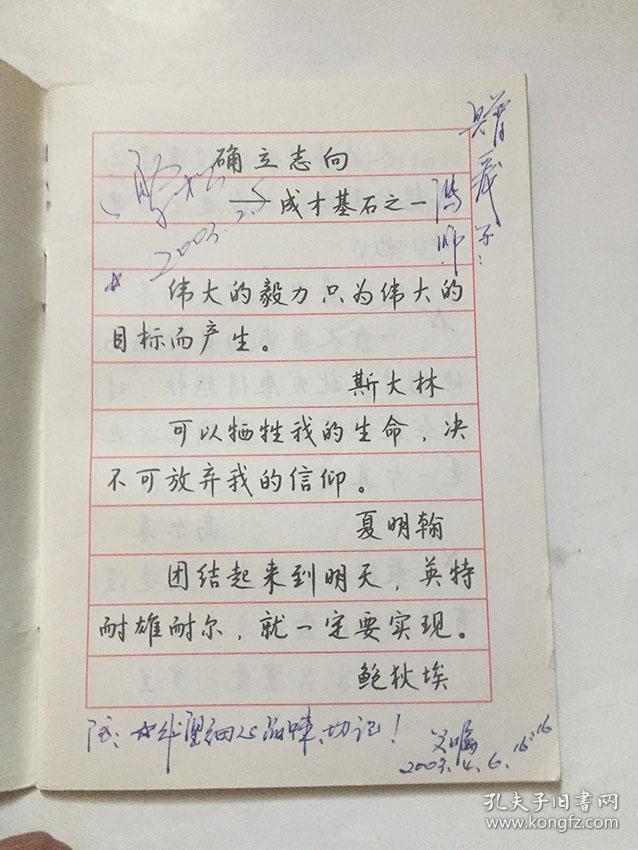 确立志向
→成才基石之一
2003.2.5
伟大的毅力只为伟大的
目标而产生。
斯大林
可以牺牲我的生命，决
不可放弃我的信仰。
夏明翰
团结起来到明天，英特
耐雄耐尔，就一定要实现。
鲍狄埃
望细心品味、切记！
父嘱
2003.4.6.
孔夫子旧书网
www.kongfz.com